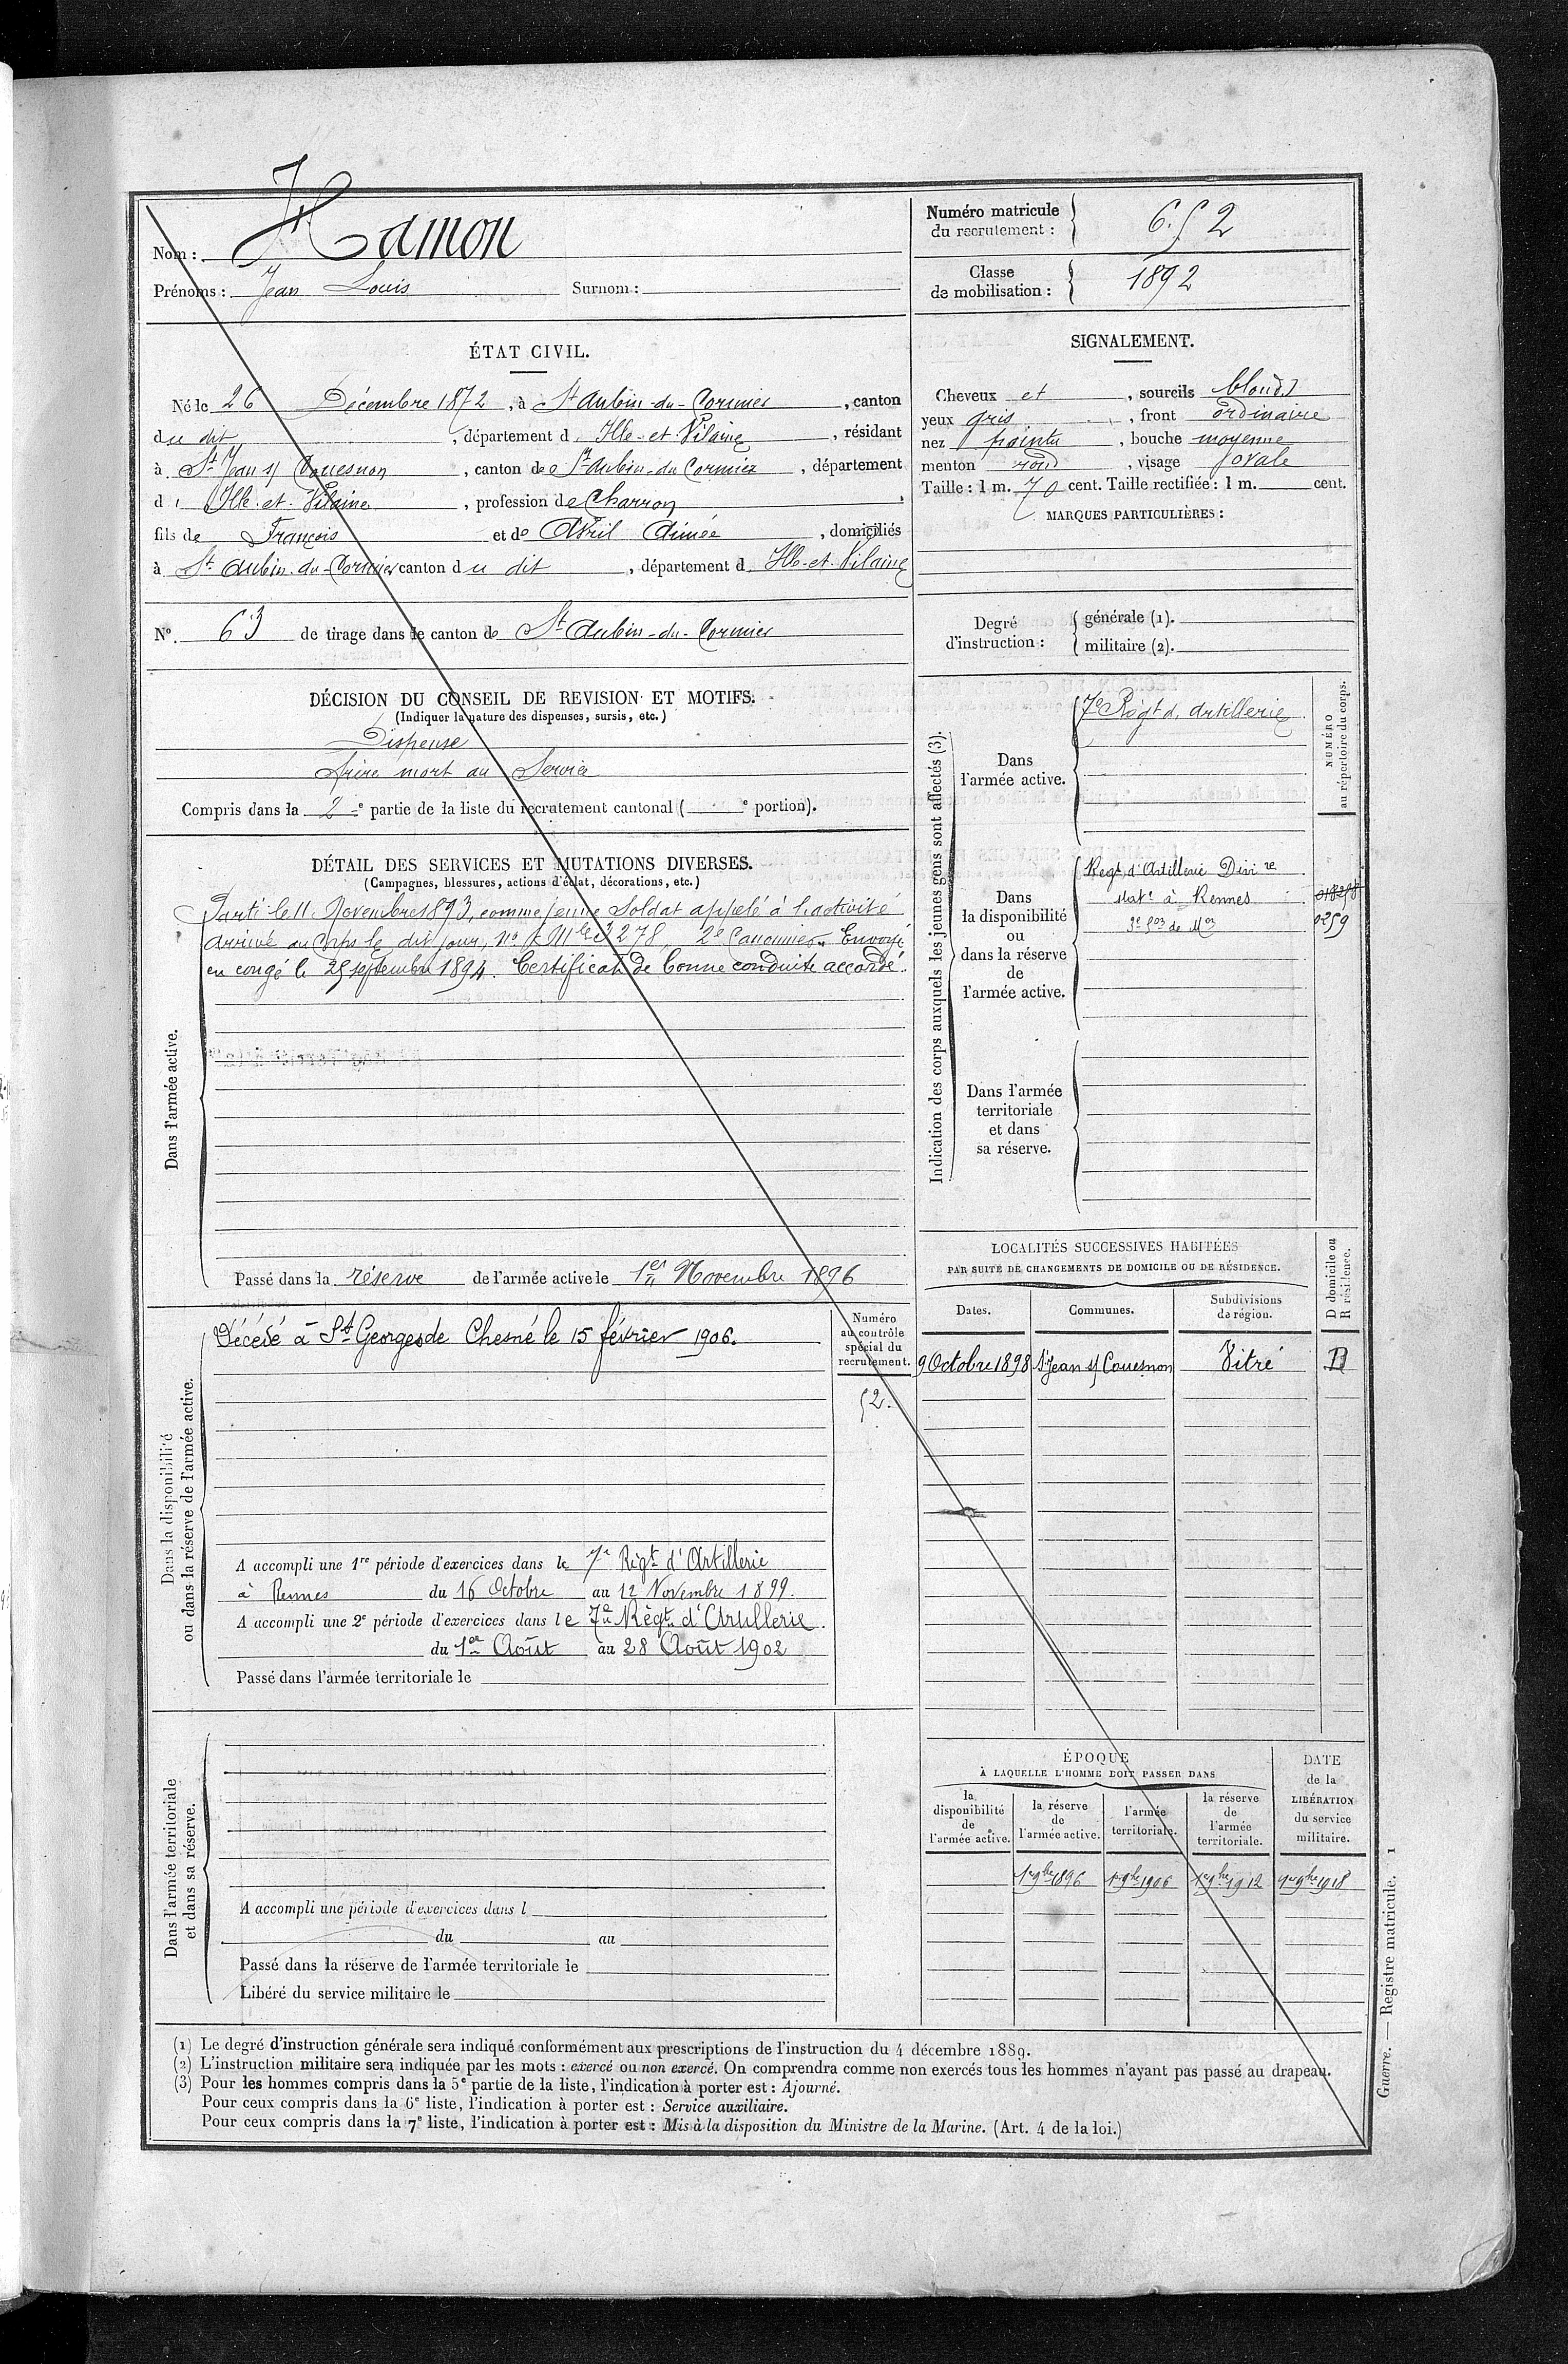 Nom : Hamon
Prénoms : Jean Louis Surnom :
Numéro matricule du recrutement : 652
Classe de mobilisation : 1892
ÉTAT CIVIL.
Né le 26 Décembre 1872, à St Aubin-du-Cormier, canton
du dit, département d Ille-et-Vilaine, résidant
à St Jean s/ Couesnon, canton de St Aubin-du-Cormier, département
d Ille-et-Vilaine, profession de Charron,
fils de François et de Avril Aimée, domiciliés
à St Aubin-du-Cormier canton du dit, département d Ille-et-Vilaine
No. 63 de tirage dans le canton de St Aubin-du-Cormier
SIGNALEMENT.
Cheveux et, sourcils blonds
yeux gris, front ordinaire
nez pointu, bouche moyenne
menton rond, visage ovale
Taille : 1 m. 70 cent. Taille rectifiée : 1 m. cent.
MARQUES PARTICULIÈRES :
Degré d'instruction :
générale (1).
militaire (2).
DÉCISION DU CONSEIL DE REVISION ET MOTIFS.
(Indiquer la nature des dispenses, sursis, etc.)
Dispensé
frère mort au Service
Compris dans la 2e partie de la liste du recrutement cantonal ( e portion).
DÉTAIL DES SERVICES ET MUTATIONS DIVERSES.
(Campagnes, blessures, actions d'éclat, décorations, etc.)
Dans l'armée active.
Parti le 11 Novembre 1893, comme jeune Soldat appelé à l'activité
arrivé au Corps le dit jour, no Mle 3278, 2e Canonnier. Envoyé
en congé le 25 septembre 1894. Certificat de bonne conduite accordé.
Passé dans la réserve de l'armée active le 1er Novembre 1896
Dans la disponibilité
ou dans la réserve de l'armée active.
Décédé à St Georges de Chesné le 15 février 1906.
Numéro
au contrôle
spécial du
recrutement.
52.
A accompli une 1re période d'exercices dans le 7e Régt d'Artillerie
à Rennes du 16 Octobre au 12 Novembre 1899.
A accompli une 2e période d'exercices dans le 7e Régt d'Artillerie.
du 1er Août au 28 Août 1902
Passé dans l'armée territoriale le
Dans l'armée territoriale
et dans sa réserve.
A accompli une période d'exercices dans l
du au
Passé dans la réserve de l'armée territoriale le
Libéré du service militaire le
Indication des corps auxquels les jeunes gens sont affectés (3).
NUMÉRO
au répertoire du corps.
Dans
l'armée active.
7e Régt d'Artillerie
Dans
la disponibilité
ou
dans la réserve
de
l'armée active.
Régt d'Artillerie Divire
à Rennes
0259
Dans l'armée
territoriale
et dans
sa réserve.
LOCALITÉS SUCCESSIVES HABITÉES
PAR SUITE DE CHANGEMENTS DE DOMICILE OU DE RÉSIDENCE.
D domicile ou
R résidence.
Dates. Communes. Subdivisions de région.
9 Octobre 1898 St Jean s/ Couesnon Vitré D
ÉPOQUE
À LAQUELLE L'HOMME DOIT PASSER DANS
la disponibilité de l'armée active.
la réserve de l'armée active.
l'armée territoriale.
la réserve de l'armée territoriale.
DATE de la LIBÉRATION du service militaire.
1er 9bre 1896 1er 9bre 1906 1er 9bre 1912 1er 9bre 1918
(1) Le degré d'instruction générale sera indiqué conformément aux prescriptions de l'instruction du 4 décembre 1889.
(2) L'instruction militaire sera indiquée par les mots : exercé ou non exercé. On comprendra comme non exercés tous les hommes n'ayant pas passé au drapeau.
(3) Pour les hommes compris dans la 5e partie de la liste, l'indication à porter est : Ajourné.
Pour ceux compris dans la 6e liste, l'indication à porter est : Service auxiliaire.
Pour ceux compris dans la 7e liste, l'indication à porter est : Mis à la disposition du Ministre de la Marine. (Art. 4 de la loi.)
Guerre. — Registre matricule. 1